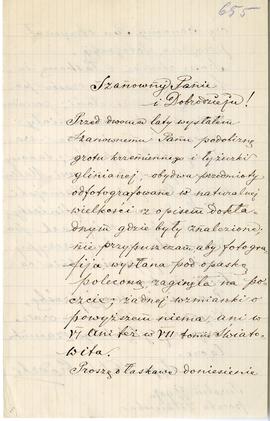 655
Szanowny Panie
i Dobrodzieju!
Przed dwoma laty wysłałem
Szanownemu Panu podobiznę
grotu krzemiennego i łyżurki
glinianej, obydwa przedmioty
odfotografowane w naturalnej
wielkości z opisem dokła-
dnym gdzie były znalezione,
nie przypuszczam aby fotogra-
fija wysłana pod opaską
poleconą zaginęła na po-
czcie, żadnej wzmianki o
powyższem niema ani w
VI ani też w VII tomie Świato-
wita.
Proszę o łaskawe doniesienie